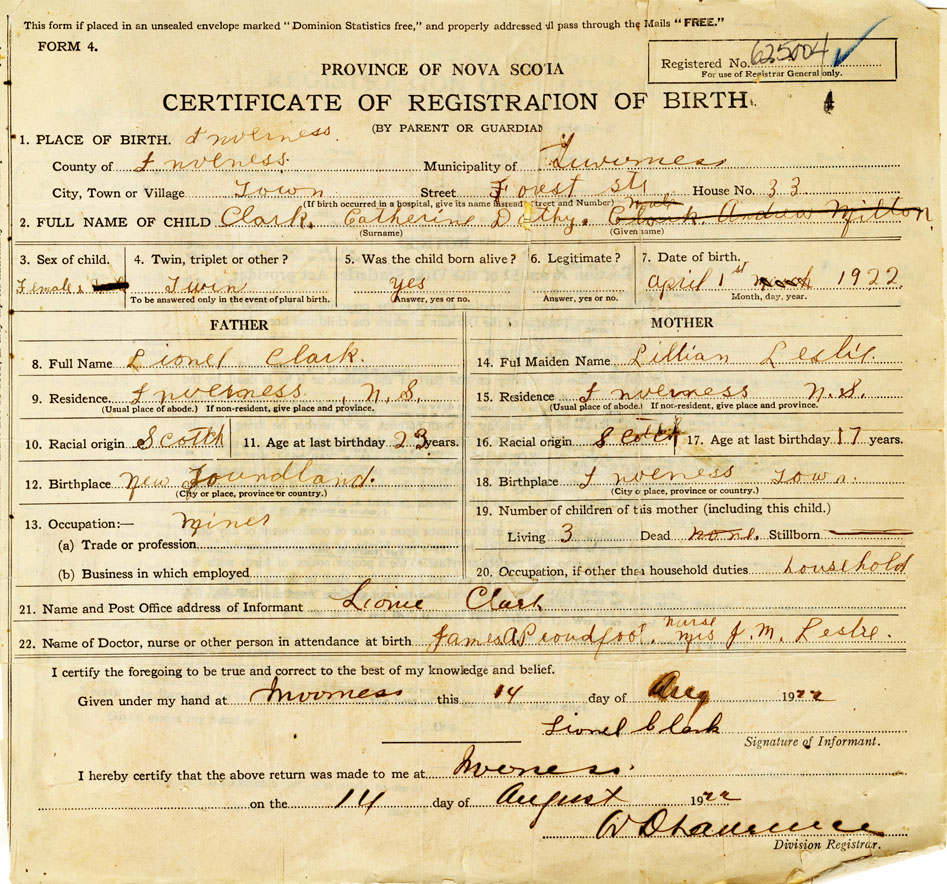 This form if placed in an unsealed envelope marked "Dominion Statistics free," and properly addressed will pass through the Mails "FREE."
FORM 4.
Registered No. 625004
For use of Registrar General only.
PROVINCE OF NOVA SCOTIA
CERTIFICATE OF REGISTRATION OF BIRTH. 4
(BY PARENT OR GUARDIAN
1. PLACE OF BIRTH. Inverness.
County of Inverness. Municipality of Inverness
City, Town or Village Town Street Forest str House No. 33
(If birth occurred in a hospital, give its name instead of street and Number)
2. FULL NAME OF CHILD Clark. Catherine Dothy. Clark Andrew Milton
(Surname) (Given name)
3. Sex of child. 4. Twin, triplet or other? 5. Was the child born alive? 6. Legitimate? 7. Date of birth.
Female & Twin yes April 1st 1922
To be answered only in the event of plural birth. Answer, yes or no. Answer, yes or no. Month, day, year.
FATHER MOTHER
8. Full Name Lionel Clark. 14. Full Maiden Name Lillian Leslie.
9. Residence Inverness, N.S. 15. Residence Inverness N.S.
(Usual place of abode.) If non-resident, give place and province. (Usual place of abode.) If non-resident, give place and province.
10. Racial origin Scotch 11. Age at last birthday 23 years. 16. Racial origin Scotch 17. Age at last birthday 17 years.
12. Birthplace New Foundland. 18. Birthplace Inverness Town.
(City or place, province or country.) (City or place, province or country.)
13. Occupation:— Miner 19. Number of children of this mother (including this child.)
(a) Trade or profession Living 3 Dead none. Stillborn
(b) Business in which employed 20. Occupation, if other than household duties household
21. Name and Post Office address of Informant Lionie Clark
22. Name of Doctor, nurse or other person in attendance at birth James A Proudfoot. nurse Mrs J. M. Leslie.
I certify the foregoing to be true and correct to the best of my knowledge and belief.
Given under my hand at Inverness this 14 day of Aug 1922
Lionel Clark
Signature of Informant.
I hereby certify that the above return was made to me at Inverness.
on the 14 day of August 1922
Division Registrar.